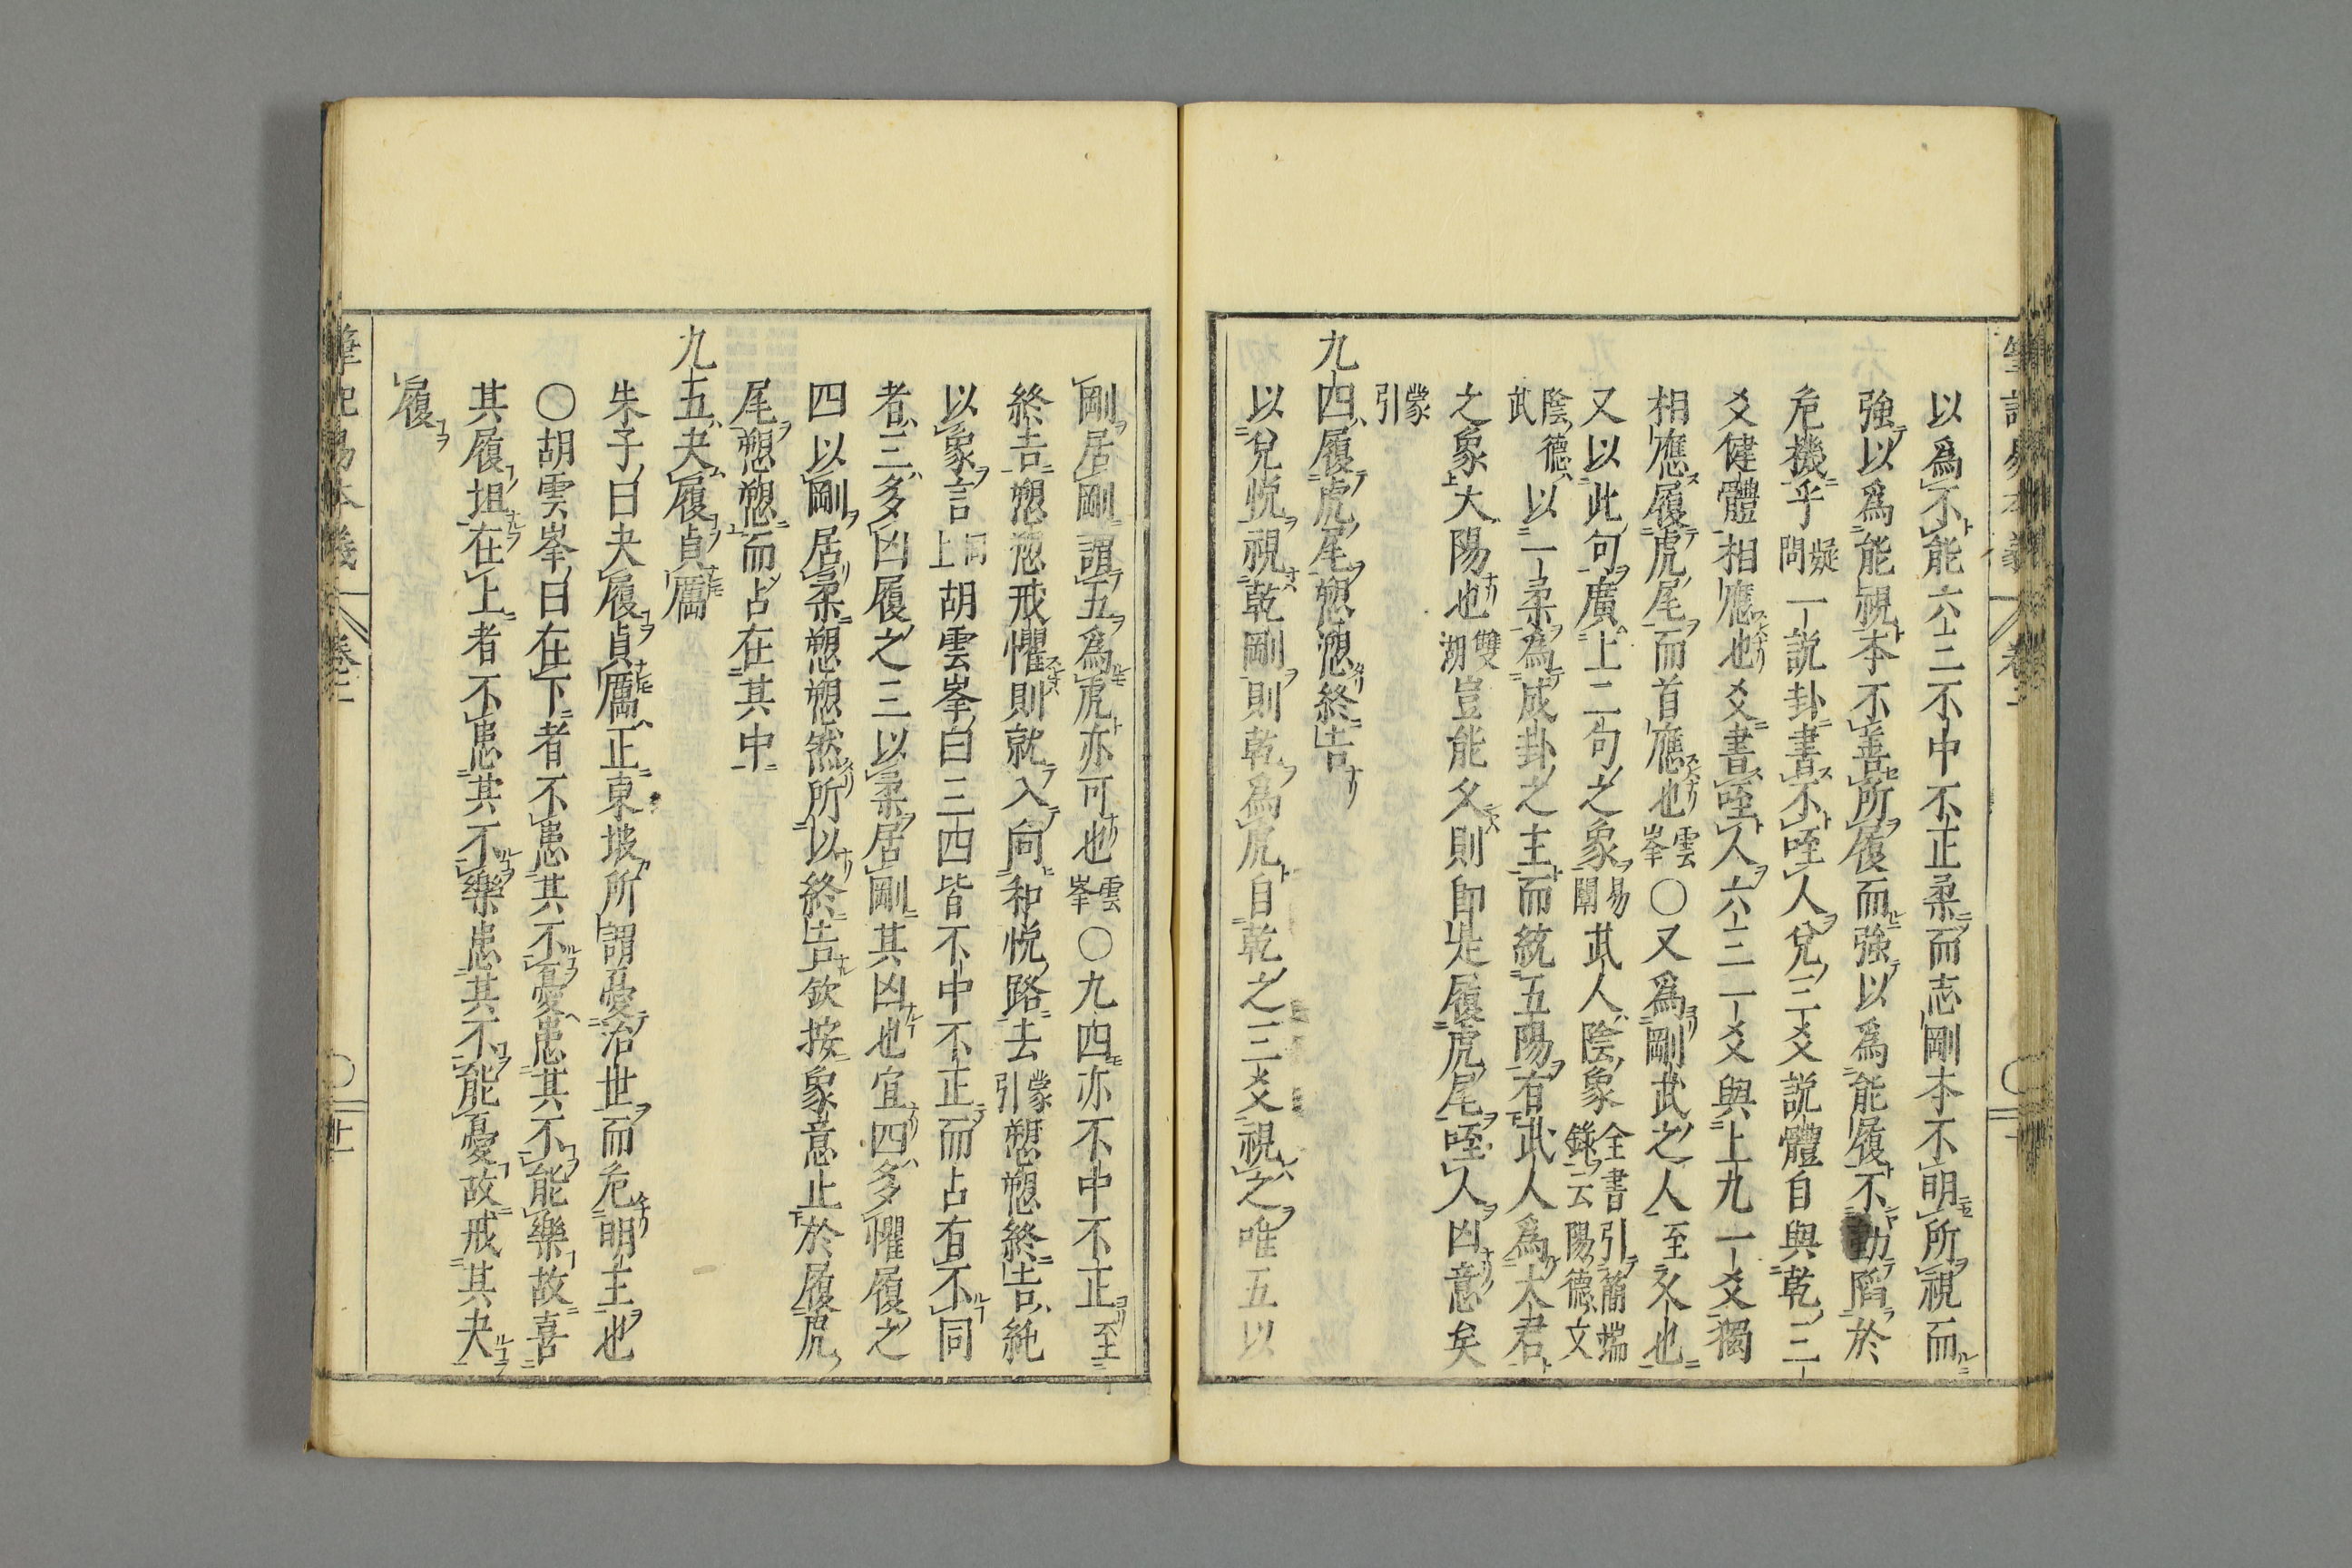 以爲不能六三不中不正柔而志剛本不明所視而
強以爲能視本不善所履而強以爲能履不動陷於
危機乎疑問一說卦書不咥人兌三爻說體自與乾三
爻健體相應也爻書咥人六三一爻與上九一爻獨
相應履虎尾而首應也雲峯〇又爲剛武之人至久也
又以此句廣上二句之象易闡武人陰象全書引簡端錄云陽德文
陰德武以一柔爲成卦之主而統五陽有武人爲大君
之象大陽也雙湖豈能久則卽是履虎尾咥人凶意矣
蒙引
九四履虎尾愬愬終吉
以兌悅視乾剛則乾爲虎自乾之三爻視之唯五以
剛居剛謂五爲虎亦可也雲峯〇九四亦不中不正至
終吉愬愬戒懼則就入向和悅路去蒙引愬愬終吉純
以象言同上胡雲峯曰三四皆不中不正而占有不同
者三多凶履之三以柔居剛其凶也宜四多懼履之
四以剛居柔愬愬然所以終吉欽按象意止於履虎
尾愬愬而占在其中
九五夬履貞厲
朱子曰夬履貞厲正東坡所謂憂治世而危明主也
〇胡雲峯曰在下者不患其不憂患其不能樂故喜
其履坦在上者不患其不樂患其不能憂故戒其夬
履
筆記易本義 卷二